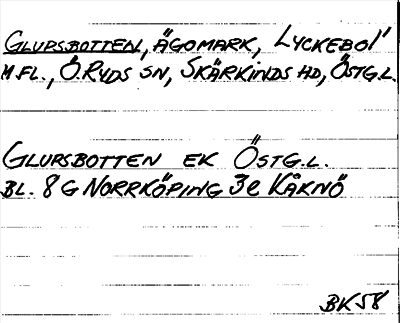 GLUPSBOTTEN, ÄGOMARK, LYCKEBOL'
M.FL., Ö. RYDS SN, SKÄRKINDS HD, ÖSTG.L.
GLUPSBOTTEN EK ÖSTG.L.
BL. 8 G NORRKÖPING 3e KÅKNÖ
BK58